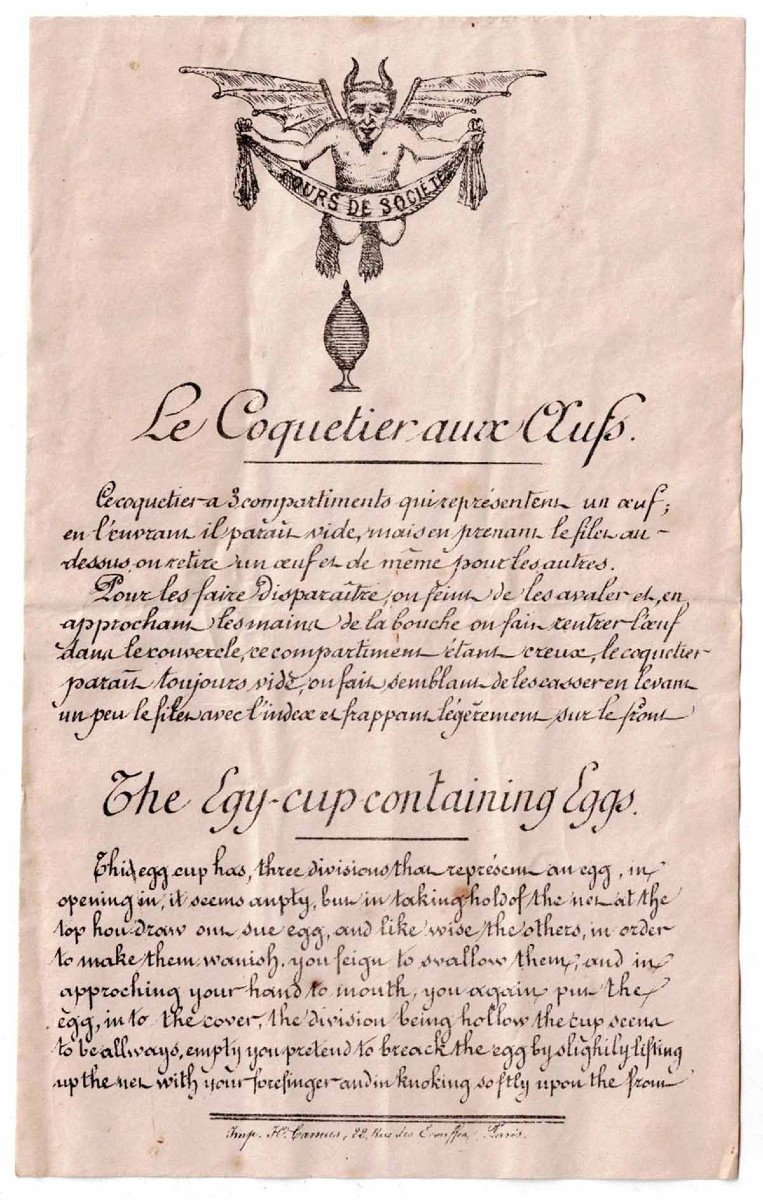 TOURS DE SOCIÉTÉ
Le Coquetier aux Œufs.
Ce coquetier a 3 compartiments qui représentent un œuf;
en l'ouvrant il paraît vide, mais en prenant le filet au-
dessus on retire un œuf et de même pour les autres.
Pour les faire disparaître, on feint de les avaler et, en
approchant les mains de la bouche on fait rentrer l'œuf
dans le couvercle, ce compartiment étant creux, le coquetier
paraît toujours vide, on fait semblant de les casser en levant
un peu le filet avec l'index et frappant légèrement sur le front
The Egy-cup containing Eggs.
This egg cup has, three divisions that represent an egg, in
opening in, it seems anpty, but in taking hold of the net at the
top hou draw out sue egg, and like wise the others, in order
to make them wanish. you feign to svallow them, and in
approching your hand to mouth, you again put the
egg, in to the cover, the division being hollow the cup seens
to be allways, empty you pretend to breack the egg by slighily lifting
up the net with your forefinger and in knoking softly upon the front
Imp. H. Camus, 22, Rue des Ecouffes, Paris.